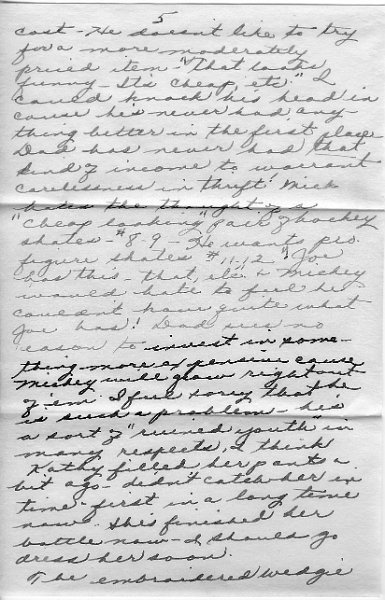 5
cost - He doesn't like to try
for a more moderately
priced item - "That looks
funny - It's cheap, etc." I
could knock his head in
cause he's never had any-
thing better in the first place
Dad has never had that
kind of income to warrant
carelessness in thrift! Mick
hates the thought of a
"cheap looking" pair of hockey
skates - $8-9 - He wants pro.
figure skates $11-12. "Joe
has this - that, etc" & Mickey
would hate to feel he
couldn't have quite what
Joe has! Dad sees no
reason to invest in some-
thing more expensive cause
Mickey will grow right out
of 'em. I feel sorry that he
is such a problem - he's
a sort of "ruined youth" in
many respects, I think
Kathy filled her pants a
bit ago - didn't catch her in
time - first in a long time
now. She's finished her
bottle now - I should go
dress her soon.
The embroidered wedgie